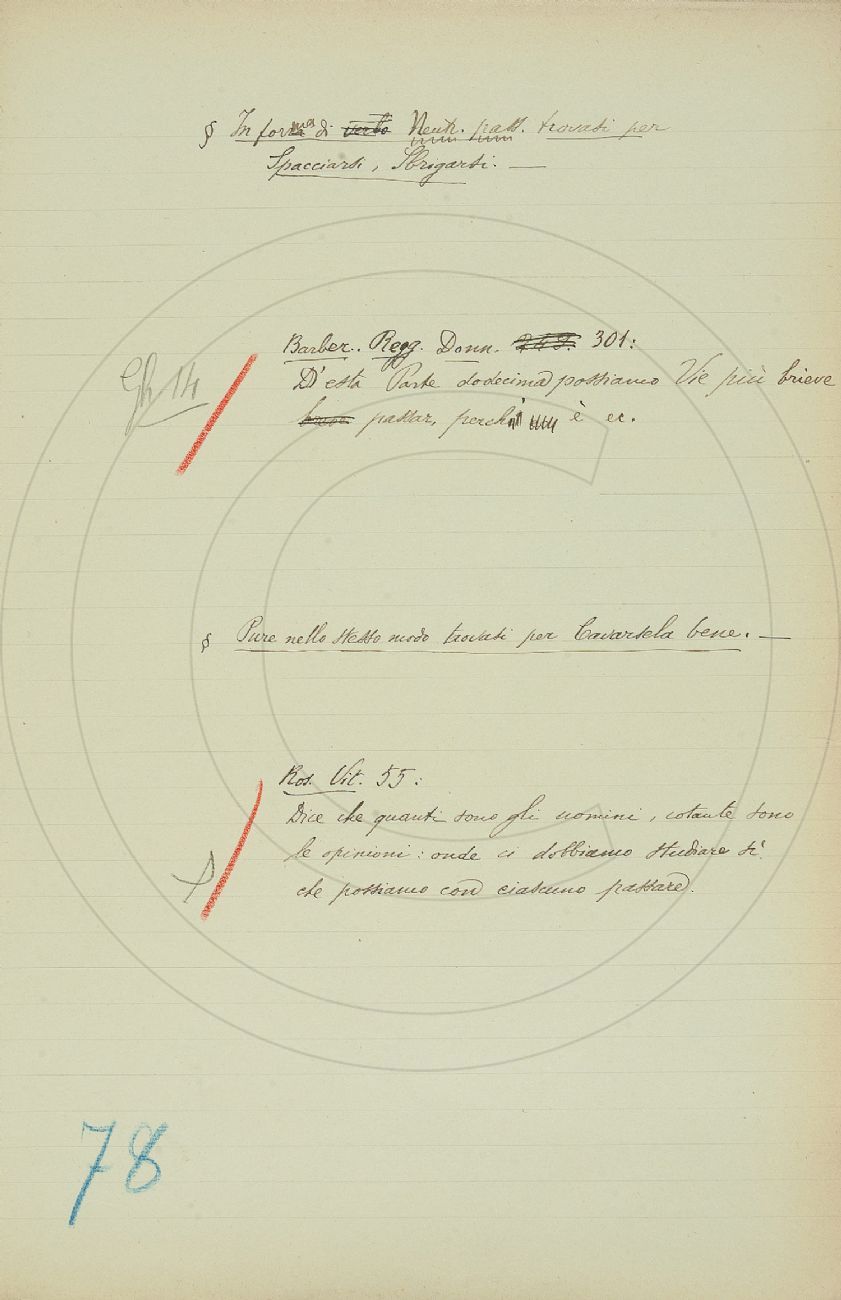 § In forma di verbo Neutr. pass. trovasi per
Spacciarsi, Sbrigarsi. —
Barber. Regg. Donn. 301:
D'esta Parte dodecima possiamo Vie più brieve
passar, perch è ec.
§ Pure nello stesso modo trovasi per Cavarsela bene. —
Ros. Vit. 55:
Dice che quanti sono gli uomini, cotante sono
le opinioni: onde ci dobbiamo studiare sì
che possiamo con ciascuno passare.
78